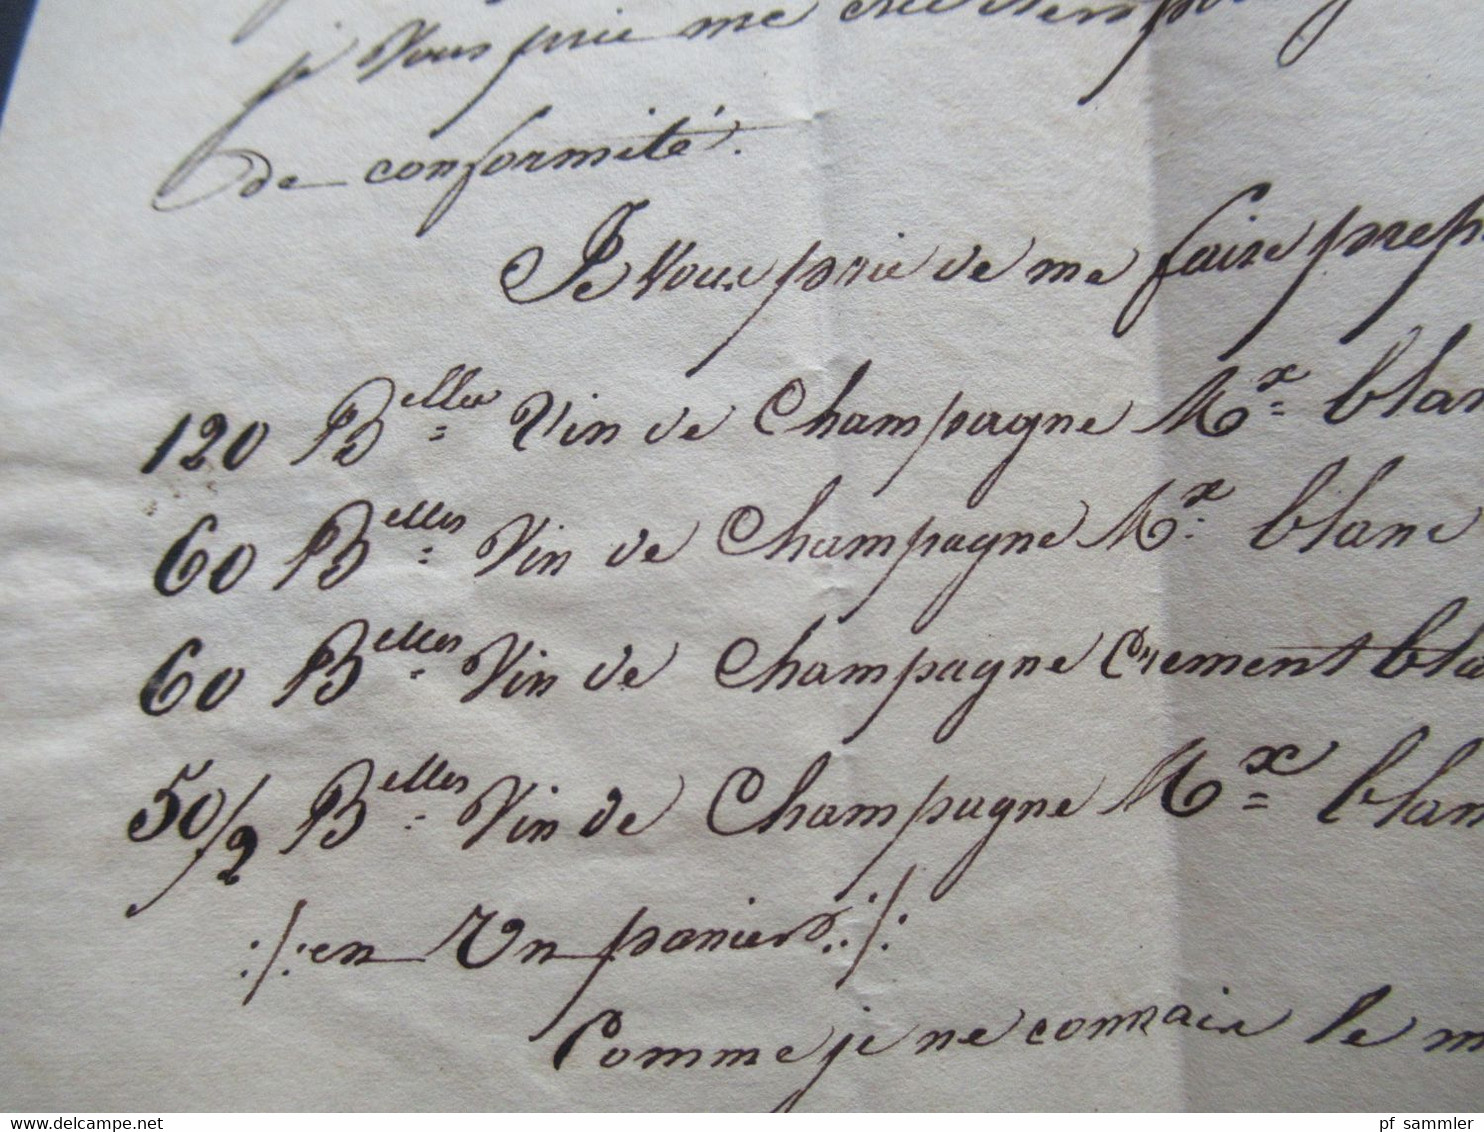 je Vous prie me
de conformité.
Je Vous prie de me faire prep
120 Belles Vin de Champagne Mx blan
60 Belles Vin de Champagne Mx blanc
60 Belles Vin de Champagne Crement bla
50/2 Belles Vin de Champagne Mx blan
:/: en Un panier :/:
Comme je ne connaix le m
www.delcampe.net
pf_sammler